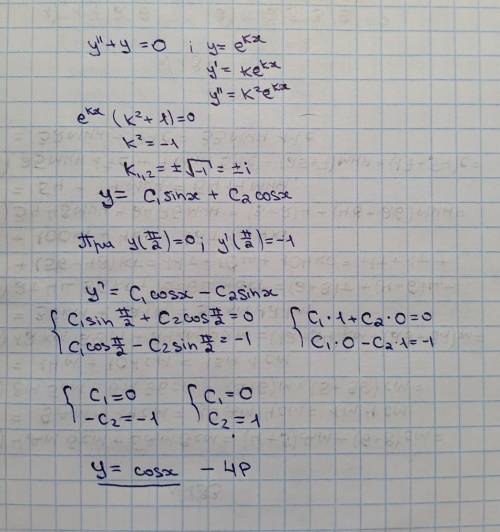 y'' + y = 0 ; y = e^{kx}
y' = ke^{kx}
y'' = k²e^{kx}
e^{kx} (k² + 1) = 0
k² = -1
k₁,₂ = ±√-1 = ±i
y = C₁sinx + C₂cosx
При y(π/2) = 0 ; y'(π/2) = -1
y' = C₁cosx - C₂sinx
{ C₁sin π/2 + C₂cos π/2 = 0 { C₁·1 + C₂·0 = 0
C₁cos π/2 - C₂sin π/2 = -1 C₁·0 - C₂·1 = -1
{ C₁ = 0 { C₁ = 0
-C₂ = -1 C₂ = 1
y = cosx - ЧР